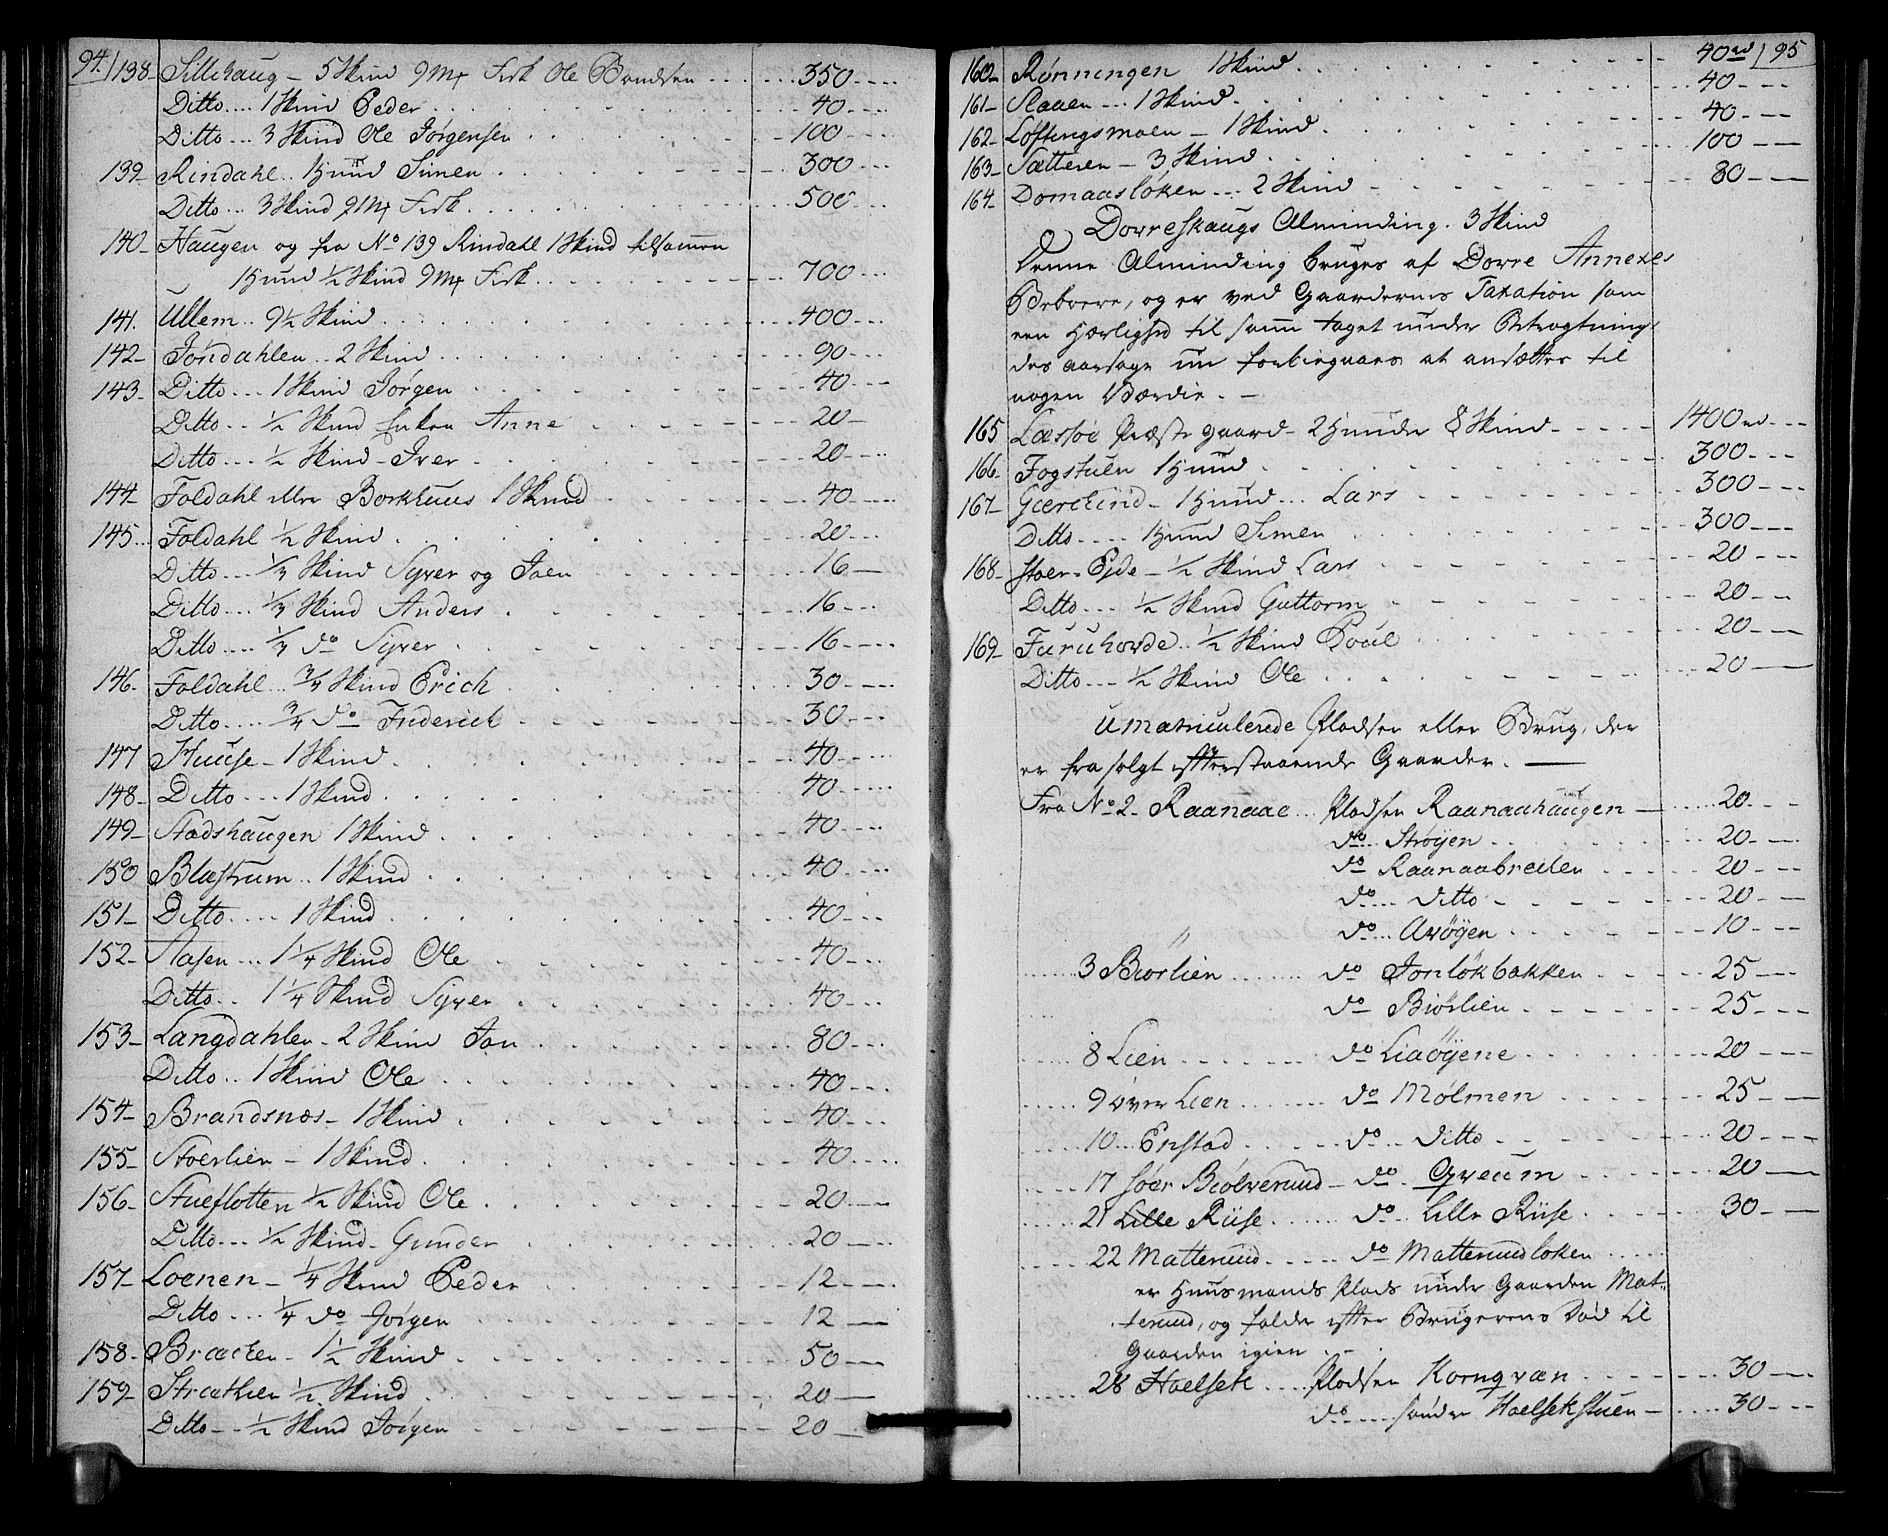 94. 138- Sillehaug - 5 Skind 9 Mk Fisk Ole Bendsen 350
Ditto 1 Skind Peder 40
Ditto 3 Skind Ole Jørgensen 100
139- Rindahl 1 Huud Simen 300
Ditto 3 Skind 9 Mk Fisk 500
140- Haugen og fra No 139 Rindahl 1 Skind tilsammen
1 Huud ½ Skind 9 Mk Fisk 700
141. Ullem 9½ Skind 400
142- Jøndahlen 2 Skind 90
143- Ditto 1 Skind Jørgen 40
Ditto ½ Skind Enken Anne 20
Ditto ½ Skind - Iver 20
144- Foldahl eller Borkhuus 1 Skind 40
145 Foldahl ½ Skind 20
Ditto ⅓ Skind Syver og Joen 16
Ditto ⅓ Skind Anders 16
Ditto ⅓ do Syver 16
146- Foldahl ¾ Skind Erich 30
Ditto ¾ do Friderich 30
147 Huuse - 1 Skind 40
148- Ditto 1 Skind 40
149- Stadshaugen 1 Skind 40
150 Blæstrum 1 Skind 40
151- Ditto 1 Skind 40
152- Aasen 1¼ Skind Ole 40
Ditto 1¼ Skind Syver 40
153- Langdahlen - 2 Skind Jon 80
Ditto 1 Skind Ole 40
154- Brandsnæs - 1 Skind 40
155- Stoerlien - 1 Skind 40
156- Stueflotten ½ Skind Ole 20
Ditto ½ Skind - Gunder 20
157- Loenen - ¼ Skind Peder 12
Ditto ¼ do Jørgen 12
158- Bracken - 1½ Skind 50
159- Stræthen ½ Skind 20
Ditto - ½ Skind Jørgen 20
160- Rønningen 1 Skind 40 rd 95
161- Slaaen 1 Skind 40
162- Løftingsmoen - 1 Skind 40
163- Sætteren - 3 Skind 100
164- Domaasløken 2 Skind 80
Dovreskaugs Alminding. 3 Skind
Denne Alminding bruges af Dovre Annexes
Beboere, og er ved Gaardernes Taxation som
een Herlighed til samme taget under Betragtning
des aarsage nu forbiegaaes at ansættes til
nogen Værdie. -
165 Læssøe Præste gaard - 2 Huuder 8 Skind 1400 rd
166- Fogstuen 1 Huud 300
167- Giærelind - 1 Huud Lars 300
Ditto 1 Huud Simen 300
168- Stoer-Eyde - ½ Skind Lars 20
Ditto ½ Skind Guttorm 20
169- Furuhovde ½ Skind Poul 20
Ditto ½ Skind Ole 20
Umatriculerede Pladser eller Brug, der
er fra solgt efterstaaende Gaarder.
Fra No 2 Raanaae Pladsen Raanaahaugen 20
do Strøyen 20
do Raanaabreden 20
do ditto 20
do Avøyen 10
3 Biorlien do Jonløkbakken 25
do Biørlien 25
8 Lien do Liaøyene 20
9 Øver Lien do Mølmen 25
10 Enstad do ditto 20
17 Søer Biølverund do Qveum 20
21 Lille Riise do Lille Riise 30
22 Matterund do Matterundløken
er Huusmands Plads under Gaarden Mat-
terund, og falder efter Brugerens Død til
Gaarden igien
28 Hoelsek Pladsen Kornqvæn 30
do søndre Hoelsekstuen 30